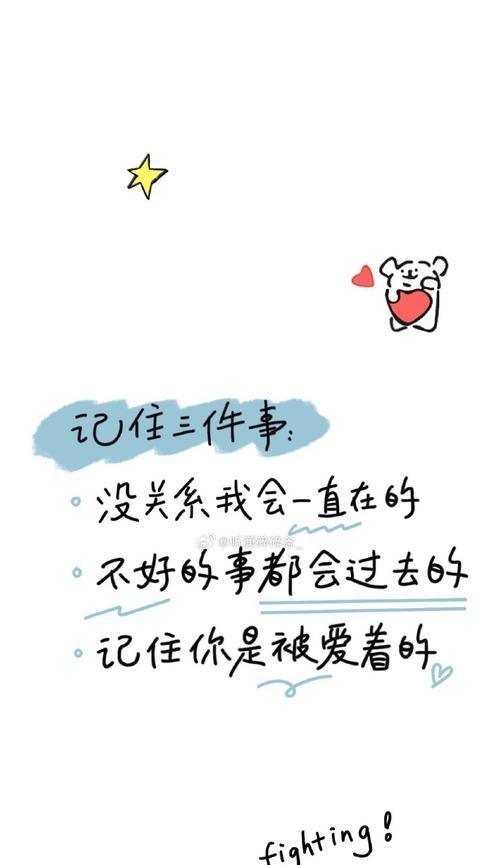 记住三件事:
没关系我会一直在的
不好的事都会过去的
记住你是被爱着的
fighting!